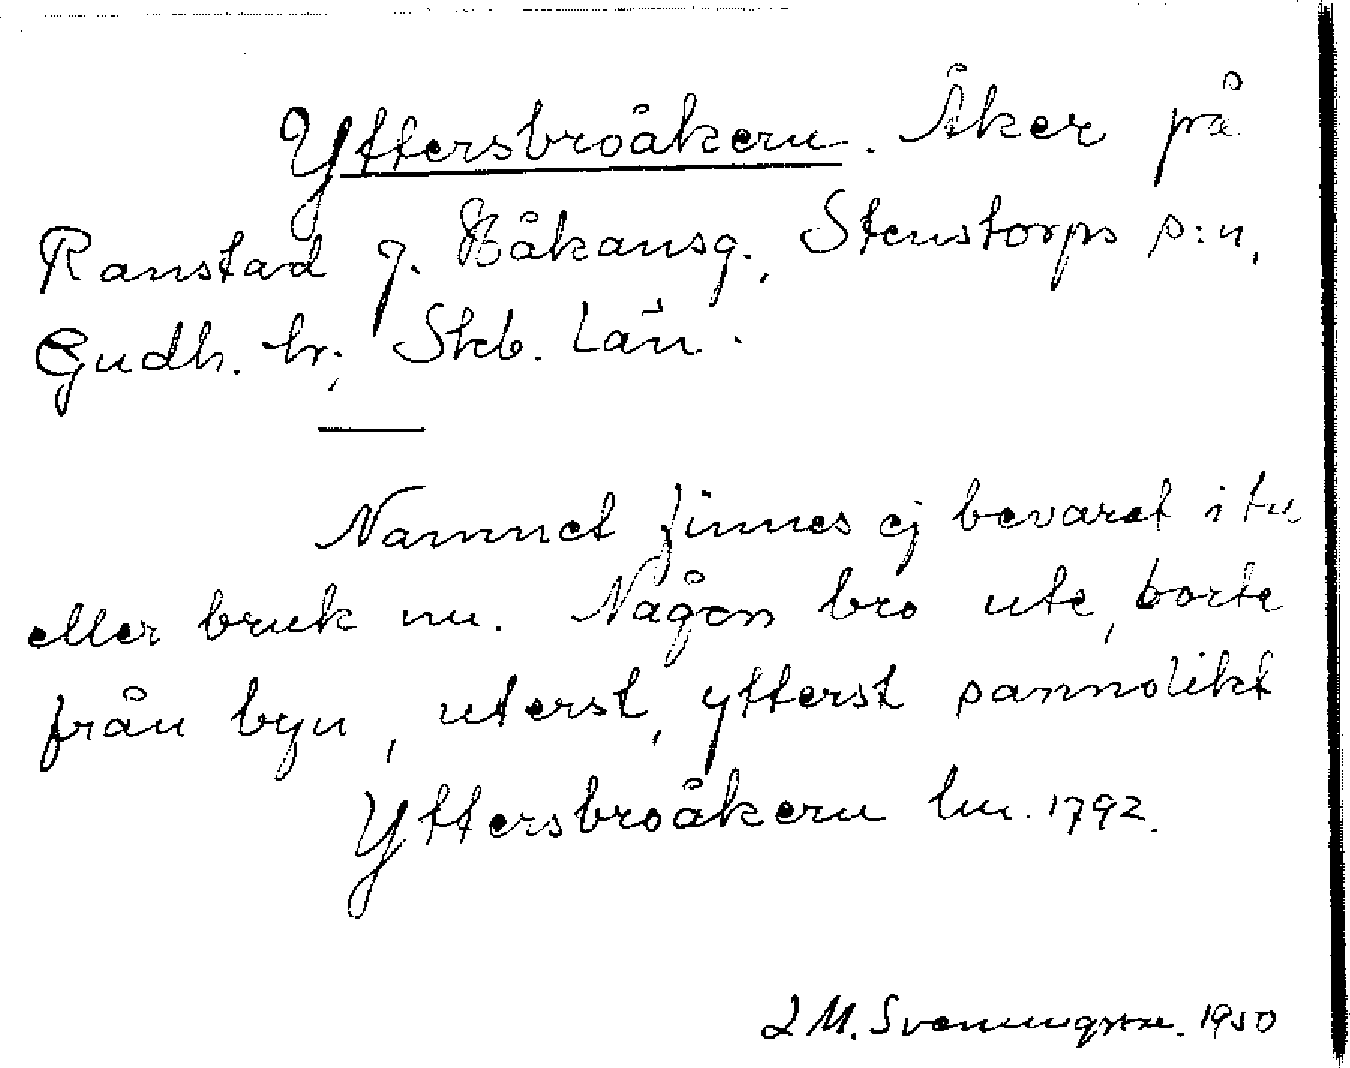 Yttersbroåkern. Åker på
Ranstad 7. Håkansg., Stenstorps s:n,
Gudh. hr; Skb. Län.
Namnet finnes ej bevarat i
eller bruk nu. Någon bro ute, borte
från byn, uterst, ytterst sannolikt
Yttersbroåkern lm. 1792.
M. Svenningsson. 1950